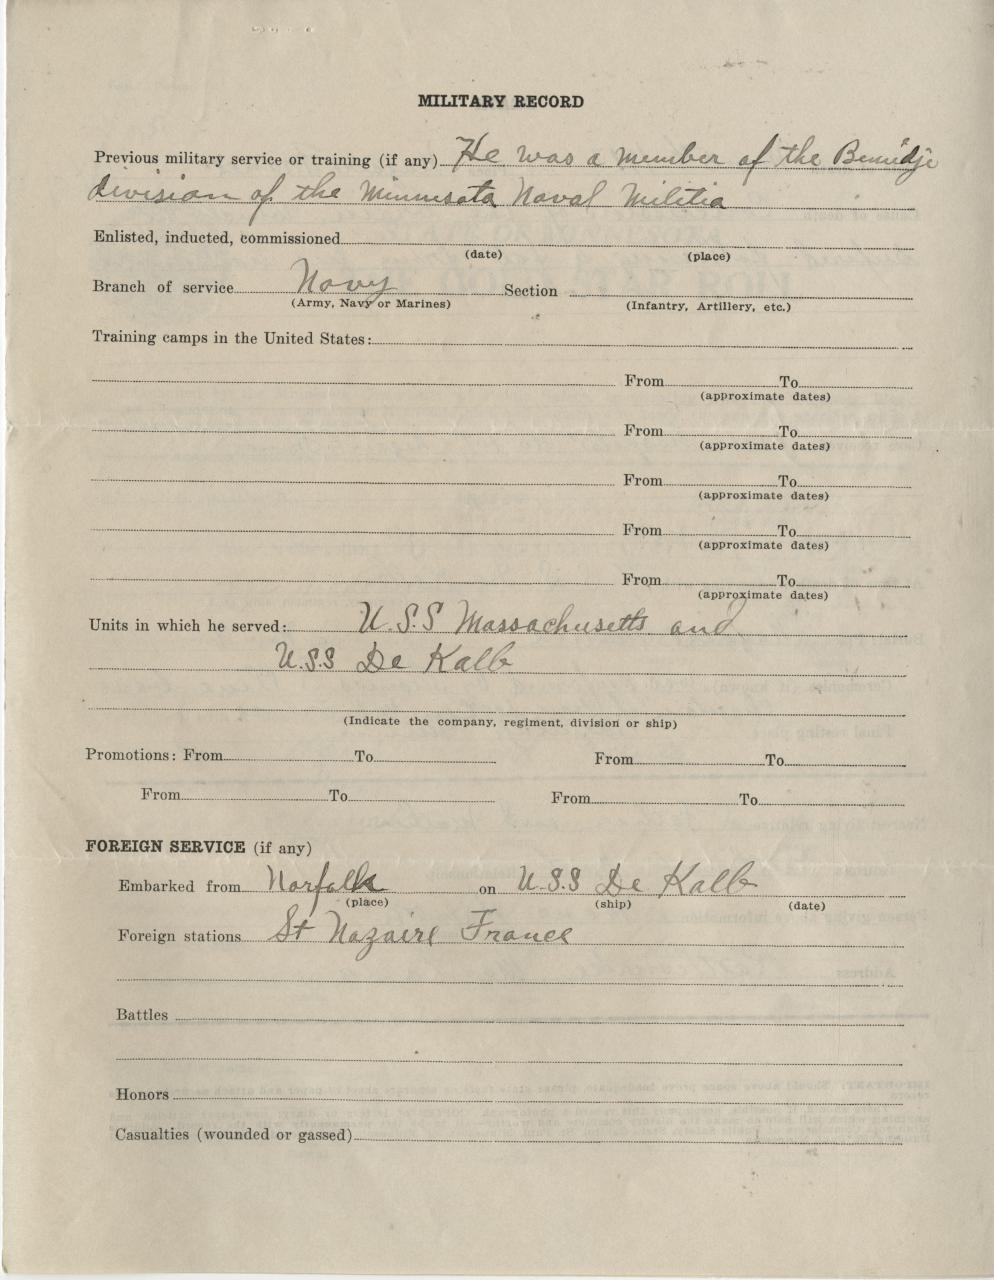 MILITARY RECORD
Previous military service or training (if any) He was a member of the Bemidji
division of the Minnesota Naval Militia
Enlisted, inducted, commissioned
(date) (place)
Branch of service Navy Section
(Army, Navy or Marines) (Infantry, Artillery, etc.)
Training camps in the United States:
From To
(approximate dates)
From To
(approximate dates)
From To
(approximate dates)
From To
(approximate dates)
From To
(approximate dates)
Units in which he served: U.S.S Massachusetts and
U.S.S De Kalb
(Indicate the company, regiment, division or ship)
Promotions: From To From To
From To From To
FOREIGN SERVICE (if any)
Embarked from Norfolk on U.S.S De Kalb
(place) (ship) (date)
Foreign stations St Nazaire France
Battles
Honors
Casualties (wounded or gassed)